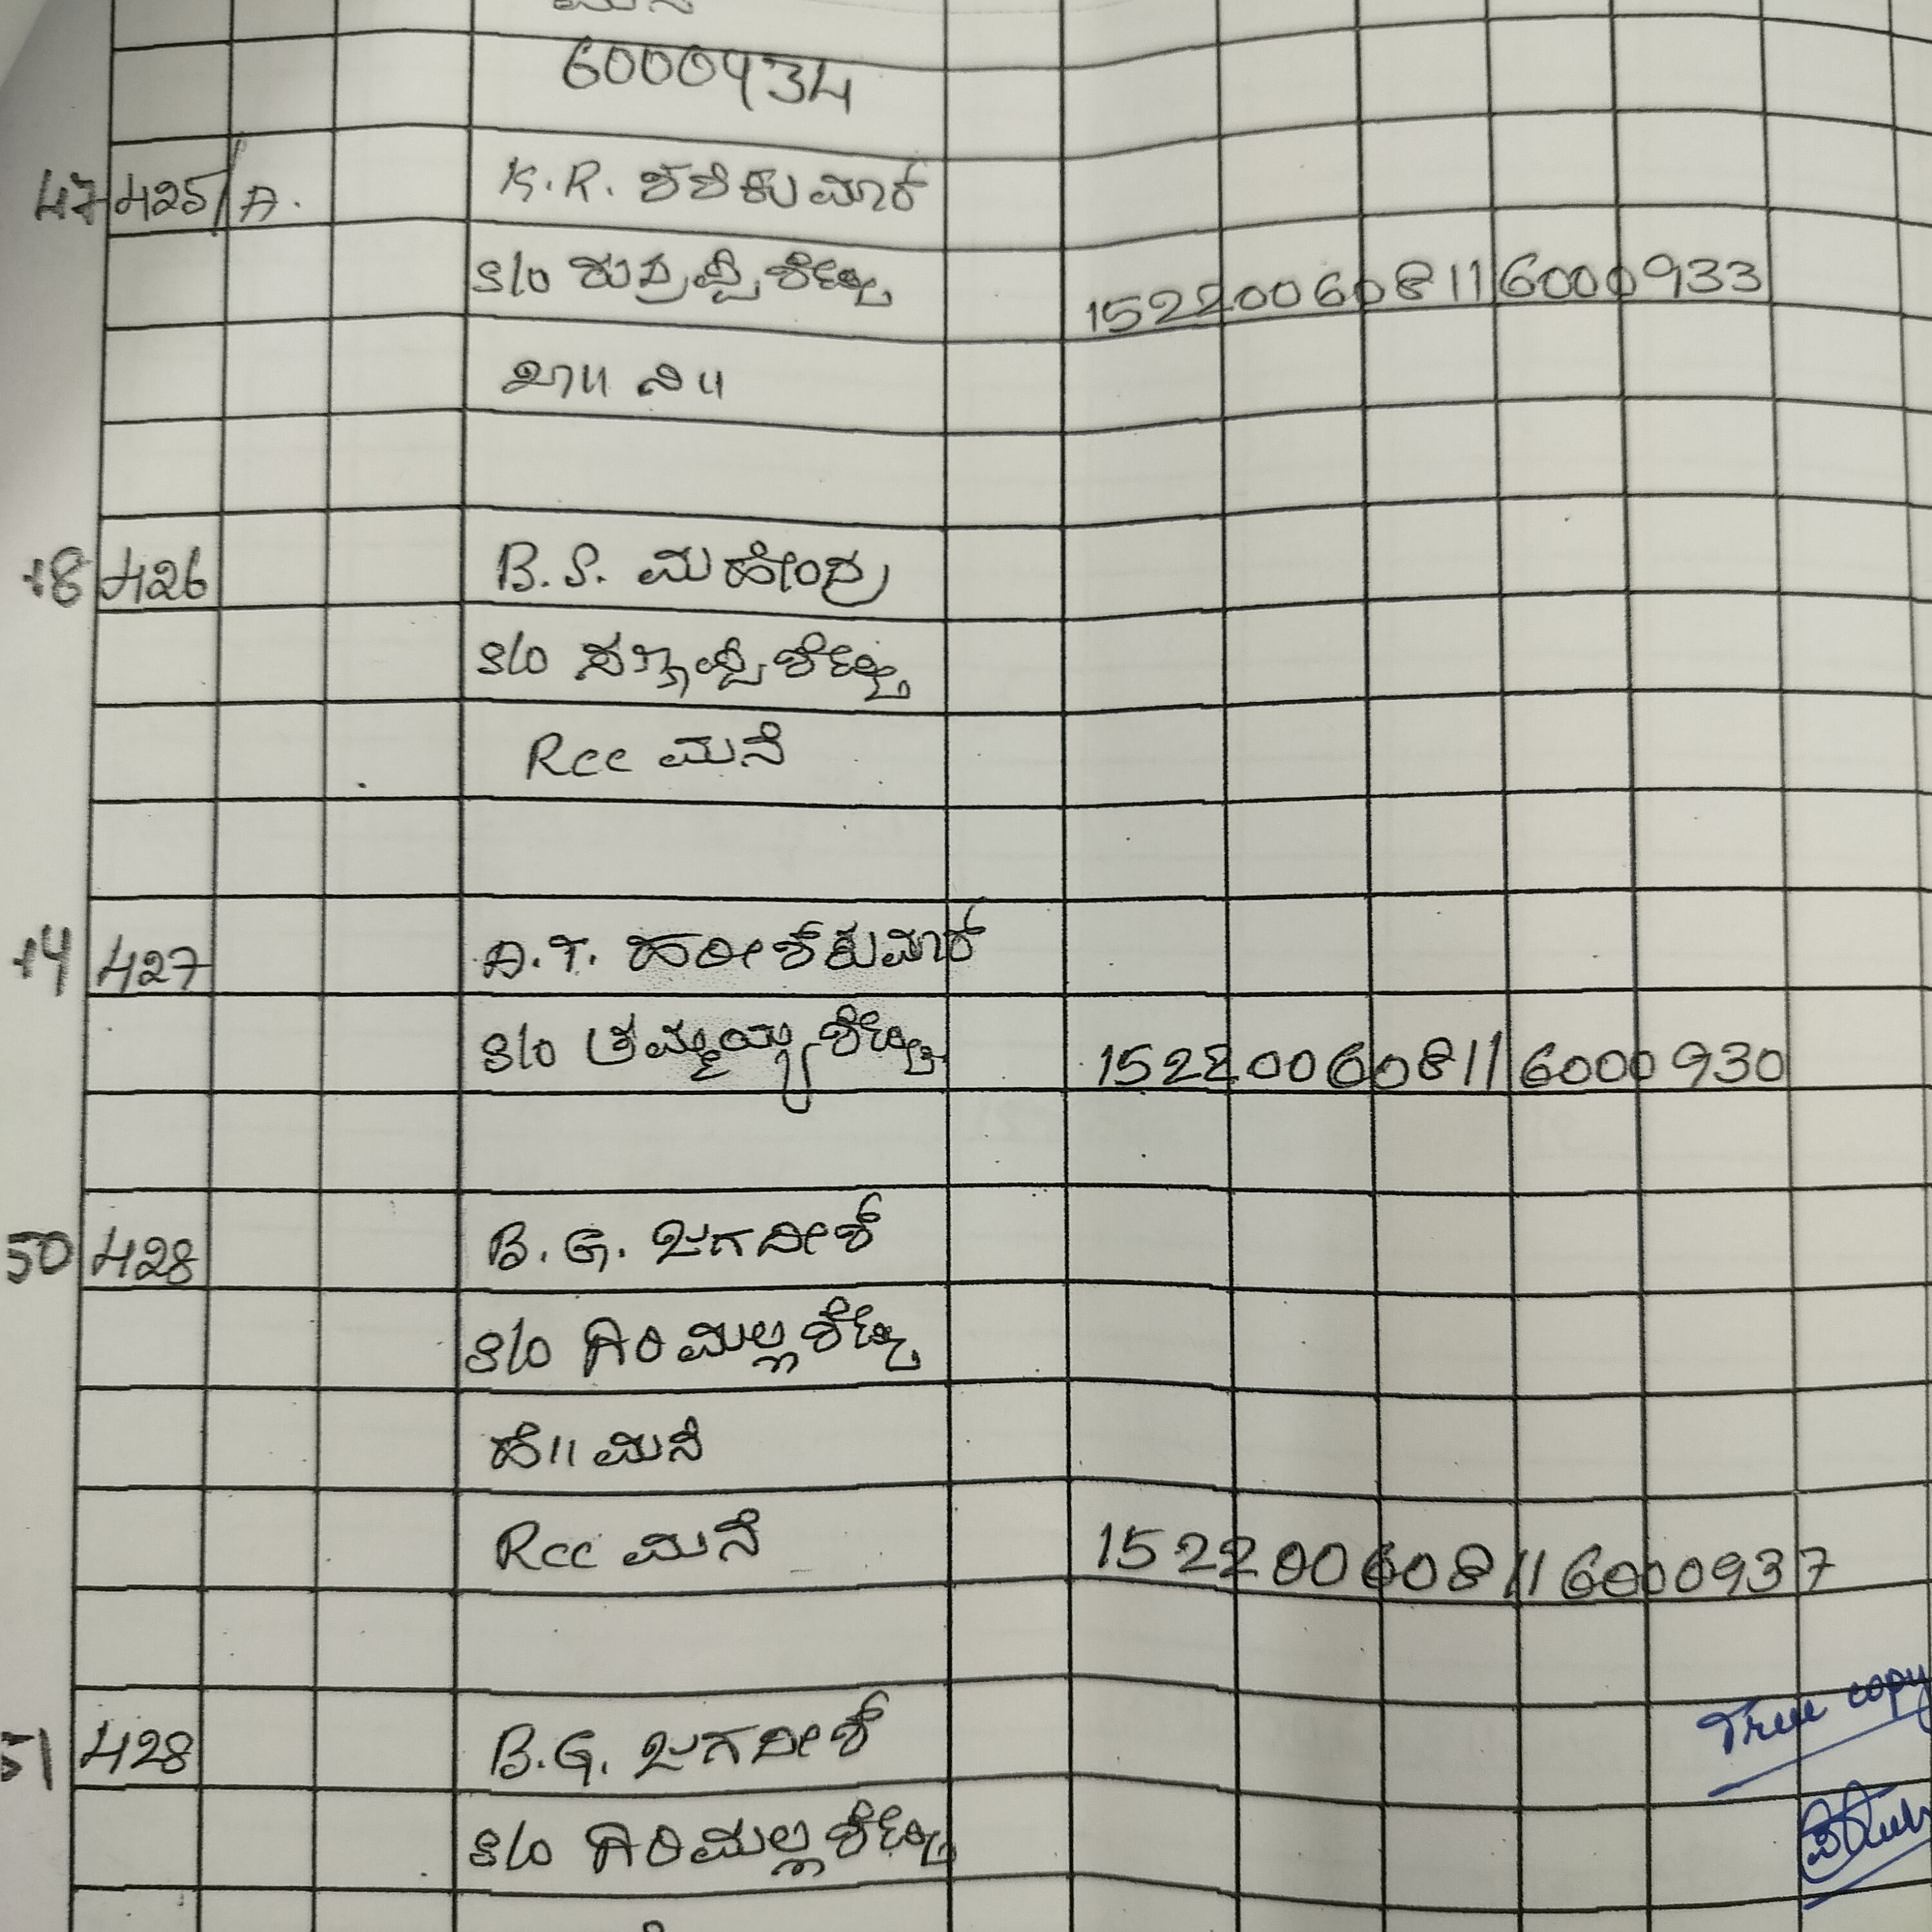 6000934
47 425/A. K.R. ಶಶಿಕುಮಾರ್
S/o ರುದ್ರಪ್ಪಶೆಟ್ಟಿ 152200608116000933
ಖಾ॥ ನಿ॥
48 426 B.S. ಮಹೇಂದ್ರ
S/o ಸಣ್ಣಪ್ಪಶೆಟ್ಟಿ
Rcc ಮನೆ
427 A.T. ಹರೀಶ್ ಕುಮಾರ್
S/o ತಮ್ಮಯ್ಯಶೆಟ್ಟಿ 152200608116000930
50 428 B.G. ಜಗದೀಶ್
S/o ಗಿರಿಮಲ್ಲಶೆಟ್ಟಿ
ಹೆ॥ ಮನೆ
Rcc ಮನೆ 152200608116000937
51 428 B.G. ಜಗದೀಶ್
True copy
S/o ಗಿರಿಮಲ್ಲಶೆಟ್ಟಿ